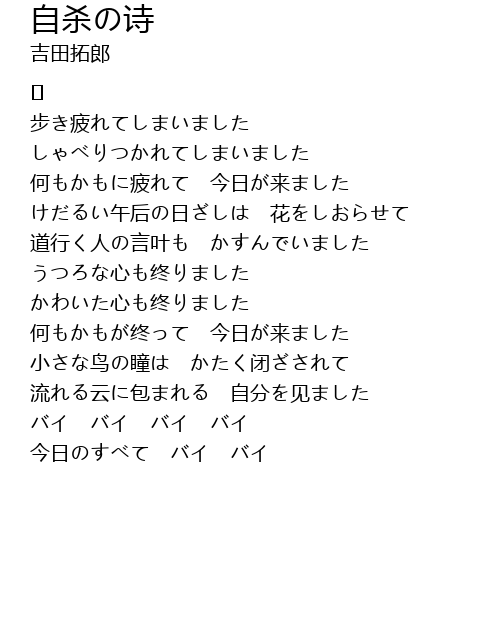 自杀の诗
吉田拓郎
歩き疲れてしまいました
しゃべりつかれてしまいました
何もかもに疲れて　今日が来ました
けだるい午后の日ざしは　花をしおらせて
道行く人の言叶も　かすんでいました
うつろな心も终りました
かわいた心も终りました
何もかもが终って　今日が来ました
小さな鸟の瞳は　かたく闭ざされて
流れる云に包まれる　自分を见ました
バイ　バイ　バイ　バイ
今日のすべて　バイ　バイ